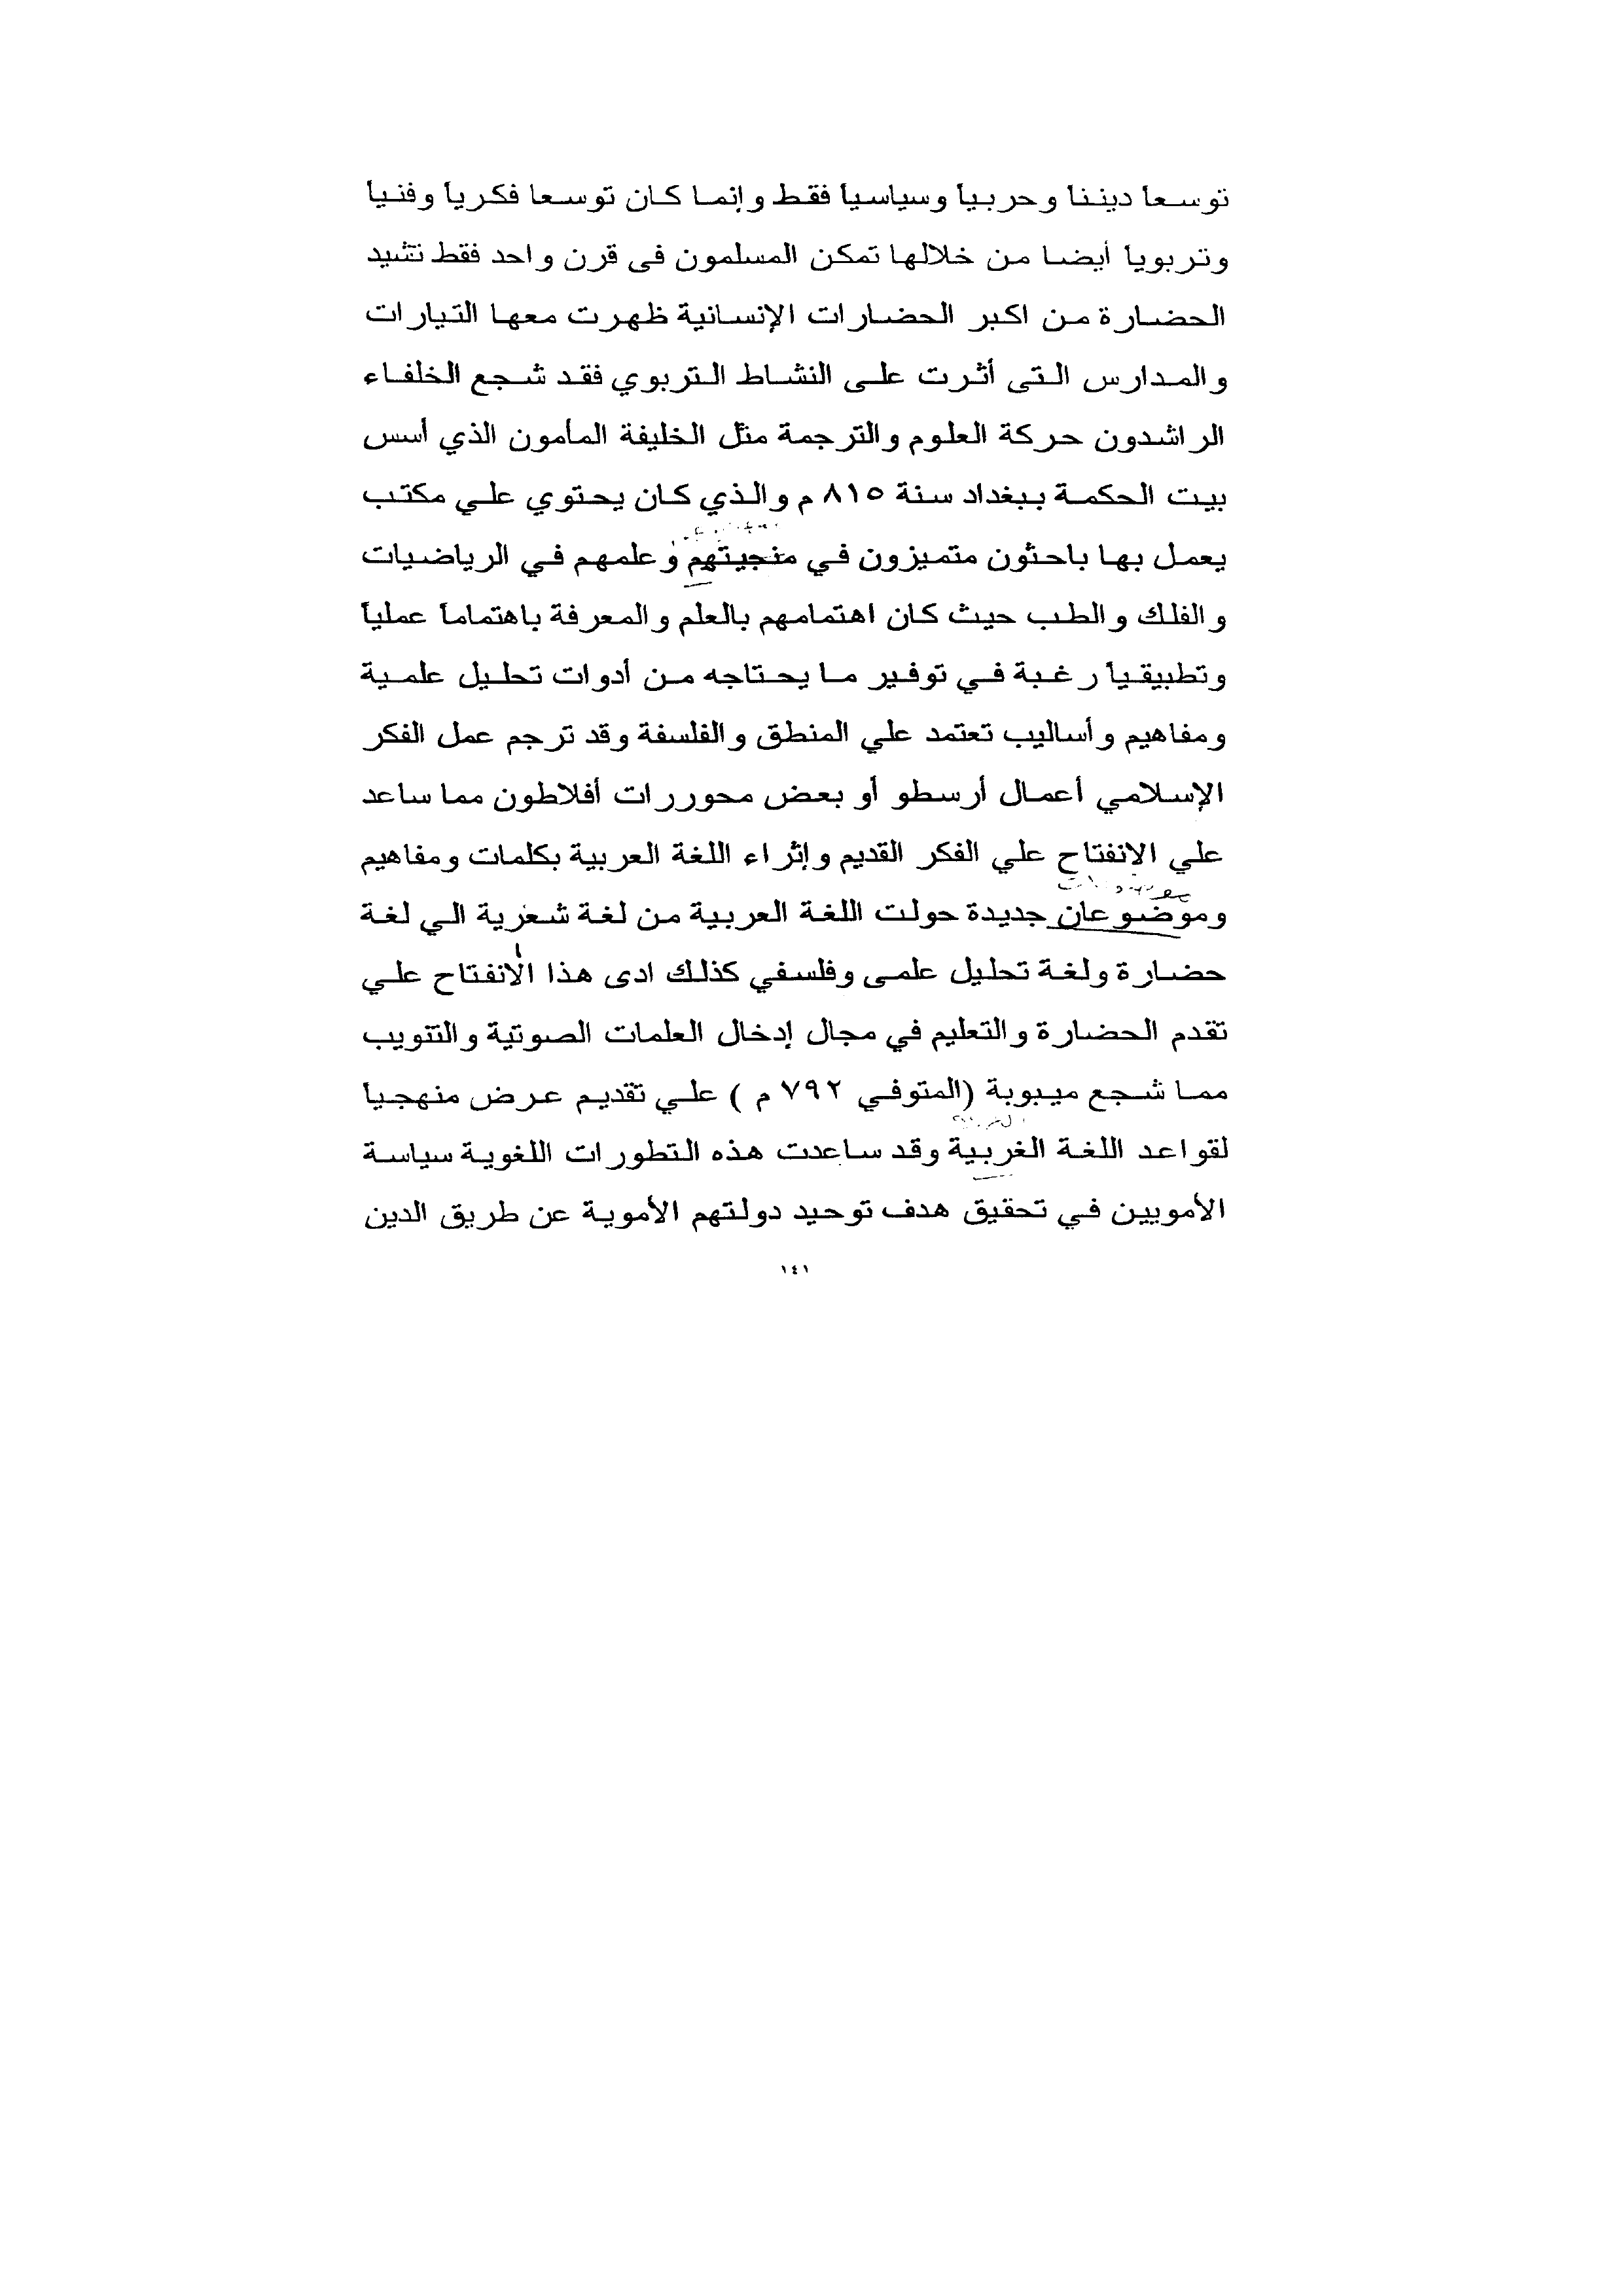 توسعا ديننا وحربياً وسياسياً فقط وإنما كان توسعا فكرياً وفنياً
وتربوياً أيضا من خلالها تمكن المسلمون فى قرن واحد فقط تشيد
الحضارة من اكبر الحضارات الإنسانية ظهرت معها التيارات
والمدارس التى أثرت على النشاط التربوي فقد شجع الخلفاء
الراشدون حركة العلوم والترجمة مثل الخليفة المأمون الذي أسس
بيت الحكمة ببغداد سنة ٨١٥ م والذي كان يحتوي علي مكتب
يعمل بها باحثون متميزون في منجيتهم وعلمهم في الرياضيات
والفلك والطب حيث كان اهتمامهم بالعلم والمعرفة باهتماماً عملياً
وتطبيقياً رغبة في توفير ما يحتاجه من أدوات تحليل علمية
ومفاهيم وأساليب تعتمد علي المنطق والفلسفة وقد ترجم عمل الفكر
الإسلامي أعمال أرسطو أو بعض محوررات أفلاطون مما ساعد
علي الانفتاح علي الفكر القديم وإثراء اللغة العربية بكلمات ومفاهيم
وموضوعان جديدة حولت اللغة العربية من لغة شعرية الي لغة
حضارة ولغة تحليل علمى وفلسفي كذلك ادى هذا الانفتاح علي
تقدم الحضارة والتعليم في مجال إدخال العلمات الصوتية والتنويب
مما شجع ميبوبة (المتوفي ٧٩٢ م ) علي تقديم عرض منهجيا
لقواعد اللغة الغربية وقد ساعدت هذه التطورات اللغوية سياسة
الأمويين في تحقيق هدف توحيد دولتهم الأموية عن طريق الدين
١٤١